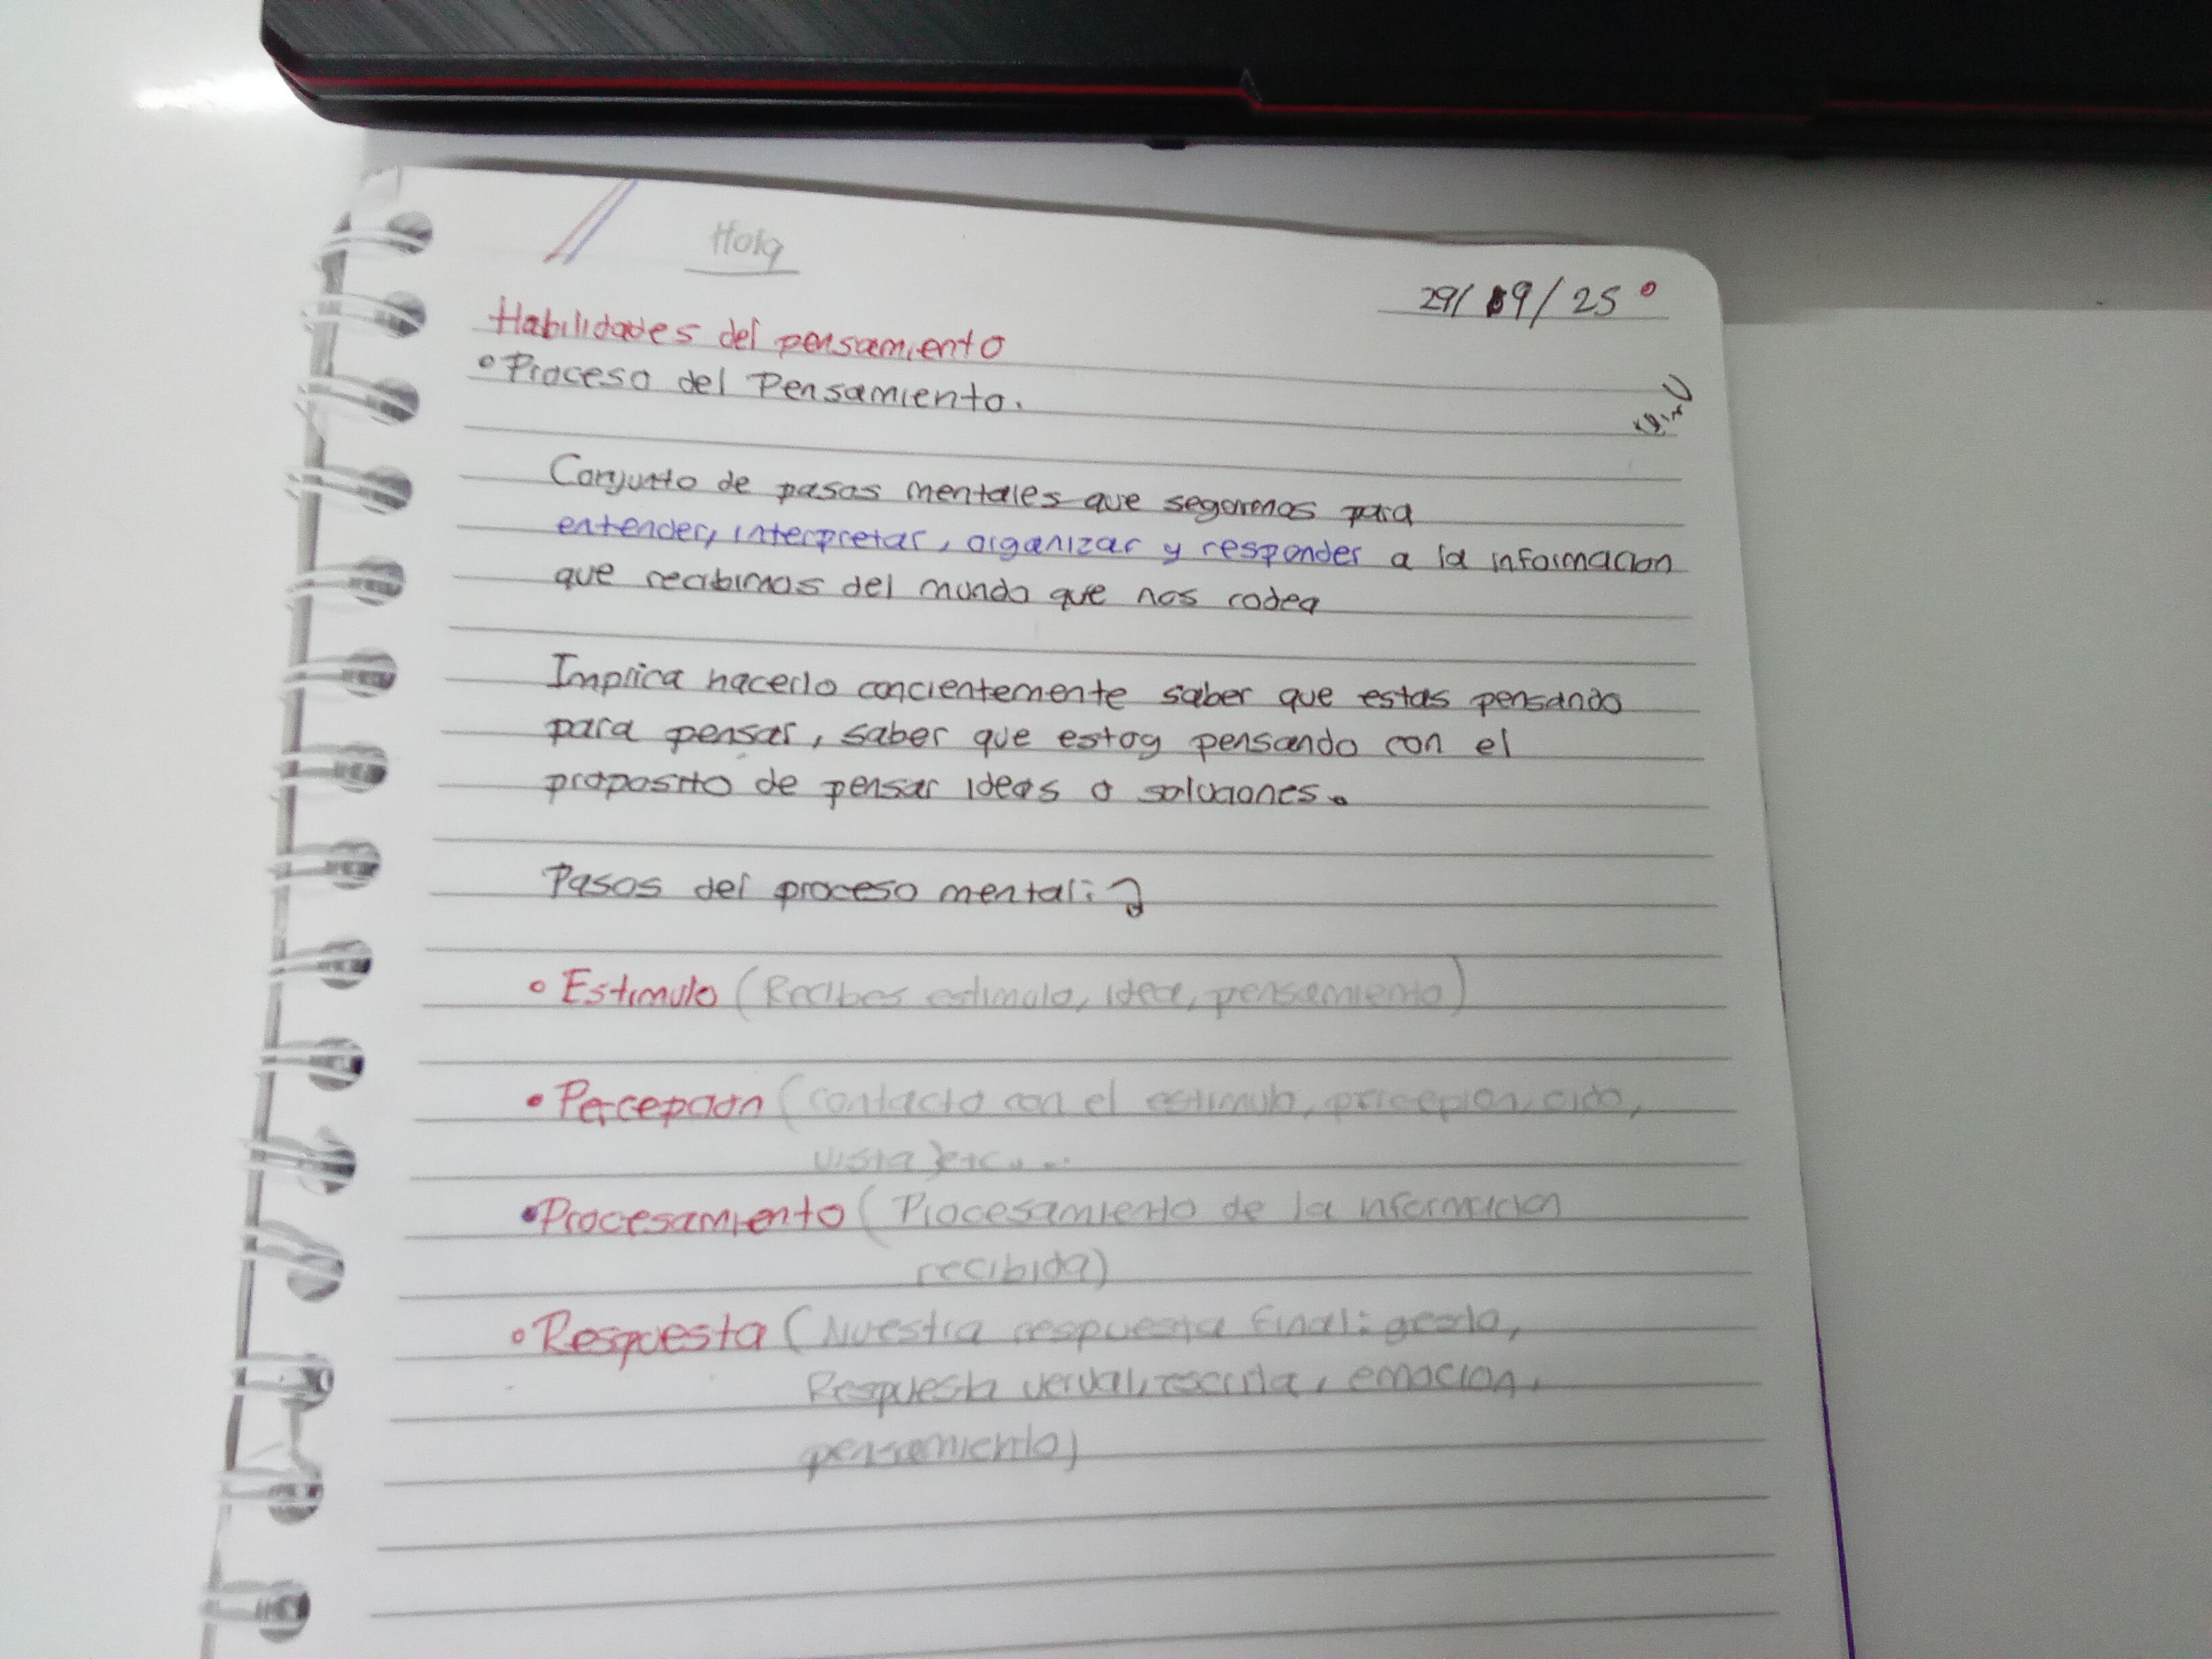 Hola
29/09/25
Habilidades del pensamiento
° Proceso del Pensamiento.
Conjunto de pasos mentales que segoremos para
entender, interpretar, organizar y responder a la informacion
que recibimos del mundo que nos rodea
Implica hacerlo concientemente saber que estas pensando
para pensar, saber que estoy pensando con el
proposito de pensar ideas o soluciones.
Pasos del proceso mental:
° Estimulo (Recibes estimulo, idea, pensamiento)
• Percepcion (contacto con el estimulo, percepion, oido,
vista) etc....
• Procesamiento (Procesamiento de la informacion
recibida)
° Respuesta (Nuestra respuesta final: gesto,
Respuesta verval, escrita, emocion,
pensamiento)